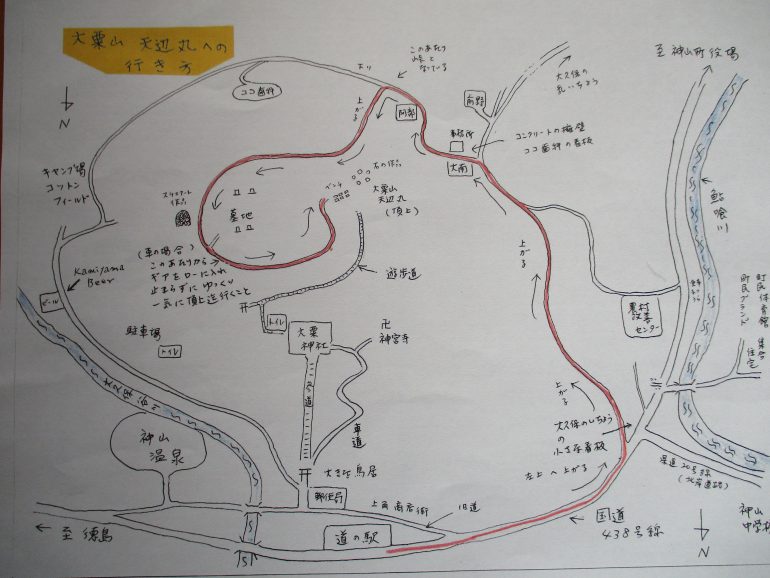 大粟山 天辺丸への
行き方
N
キャンプ場
コットン
フィールド
Kamiyama
Beer
ビール
ココ歯科
下リ
このあたり
峠と
なっている
上がる
阿部
事務所
大南
前野
大久保の
乳いちょう
コンクリートの擁壁
ココ歯科の看板
至 神山町役場
鮎喰川
石の作品
ベンチ
大粟山
天辺丸
(頂上)
墓地
作品
(車の場合)
このあたりから
ギアをローに入れ
止まらずにゆっくり
一気に頂上迄行くこと
遊歩道
トイレ
大粟
神社
卍
神宮寺
車道
大きな鳥居
郵便局
駐車場
トイレ
大久保谷川
神山
温泉
上がる
農村
改善
センター
町民体育館
町民グランド
集合
住宅
上がる
大久保のいちょう
の
小さな看板
左上へ上がる
県道20号線
神山
中学校
N
国道
438号線
上角商店街
旧道
道の駅
至 徳島